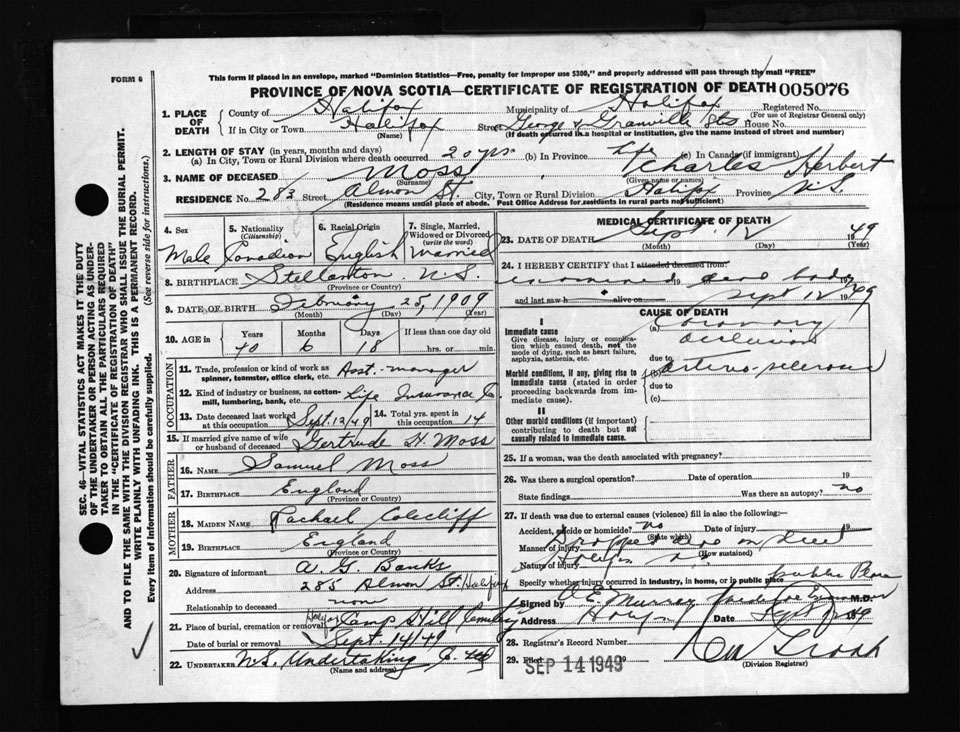 FORM 6
This form if placed in an envelope, marked "Dominion Statistics—Free, penalty for improper use $300," and properly addressed will pass through the mail "FREE"
PROVINCE OF NOVA SCOTIA—CERTIFICATE OF REGISTRATION OF DEATH 005076
1. PLACE OF DEATH
County of Halifax Municipality of Halifax Registered No.
(For use of Registrar General only)
If in City or Town Halifax Street George & Granville Sts House No.
(Name) (If death occurred in a hospital or institution, give the name instead of street and number)
2. LENGTH OF STAY (in years, months and days)
(a) In City, Town or Rural Division where death occurred 20 yrs (b) In Province life (c) In Canada (if immigrant)
3. NAME OF DECEASED Moss Charles Herbert
(Surname) (Given name or names)
RESIDENCE No. 283 Street Almon St. City, Town or Rural Division Halifax Province N.S.
(Residence means usual place of abode. Post Office Address for residents in rural parts not sufficient)
4. Sex
5. Nationality (Citizenship)
6. Racial Origin
7. Single, Married, Widowed or Divorced (write the word)
Male Canadian English Married
8. BIRTHPLACE Stellarton N.S.
(Province or Country)
9. DATE OF BIRTH February 25, 1909
(Month) (Day) (Year)
10. AGE in Years Months Days If less than one day old
40 6 18 hrs. or min.
OCCUPATION
11. Trade, profession or kind of work as spinner, teamster, office clerk, etc. Asst. manager
12. Kind of industry or business, as cotton-mill, lumbering, bank, etc. Life Insurance Co.
13. Date deceased last worked at this occupation Sept. 12/49 14. Total yrs. spent in this occupation 14
15. If married give name of wife or husband of deceased Gertrude H. Moss
FATHER
16. NAME Samuel Moss
17. BIRTHPLACE England
(Province or Country)
MOTHER
18. MAIDEN NAME Rachael
19. BIRTHPLACE England
(Province or Country)
20. Signature of informant A. G. Banks
Address 285 Almon St. Halifax
Relationship to deceased none
21. Place of burial, cremation or removal Camp Hill Cemetery
Date of burial or removal Sept. 14/49
22. UNDERTAKER N.S. Undertaking Co. Ltd
(Name and address)
MEDICAL CERTIFICATE OF DEATH
23. DATE OF DEATH Sept. 12 1949
(Month) (Day) (Year)
24. I HEREBY CERTIFY that I attended deceased from:
examined dead body
19 19
and last saw h alive on Sept 12 1949
CAUSE OF DEATH
I
Immediate cause
Give disease, injury or complication which caused death, not the mode of dying, such as heart failure, asphyxia, asthenia, etc.
(a) Coronary occlusion
due to
Morbid conditions, if any, giving rise to immediate cause (stated in order proceeding backwards from immediate cause).
(b) arterio-sclerosis
due to
(c)
II
Other morbid conditions (if important) contributing to death but not causally related to immediate cause.
25. If a woman, was the death associated with pregnancy?
26. Was there a surgical operation? Date of operation 19
State findings Was there an autopsy? no
27. If death was due to external causes (violence) fill in also the following:
Accident, suicide or homicide? no Date of injury 19
(State which)
Manner of injury Dropped dead on street
(How sustained)
Nature of injury
Specify whether injury occurred in industry, in home, or in public place public place
Signed by Murray M.D.
Address Halifax Date Sept 1949
28. Registrar's Record Number
29. Filed SEP 14 1949 19
(Division Registrar)
SEC. 46—VITAL STATISTICS ACT MAKES IT THE DUTY
OF THE UNDERTAKER OR PERSON ACTING AS UNDER-
TAKER TO OBTAIN ALL THE PARTICULARS REQUIRED
IN THE "CERTIFICATE OF REGISTRATION OF DEATH"
AND TO FILE THE SAME WITH THE DIVISION REGISTRAR WHO SHALL ISSUE THE BURIAL PERMIT.
WRITE PLAINLY WITH UNFADING INK. THIS IS A PERMANENT RECORD.
Every item of information should be carefully supplied. (See reverse side for instructions.)